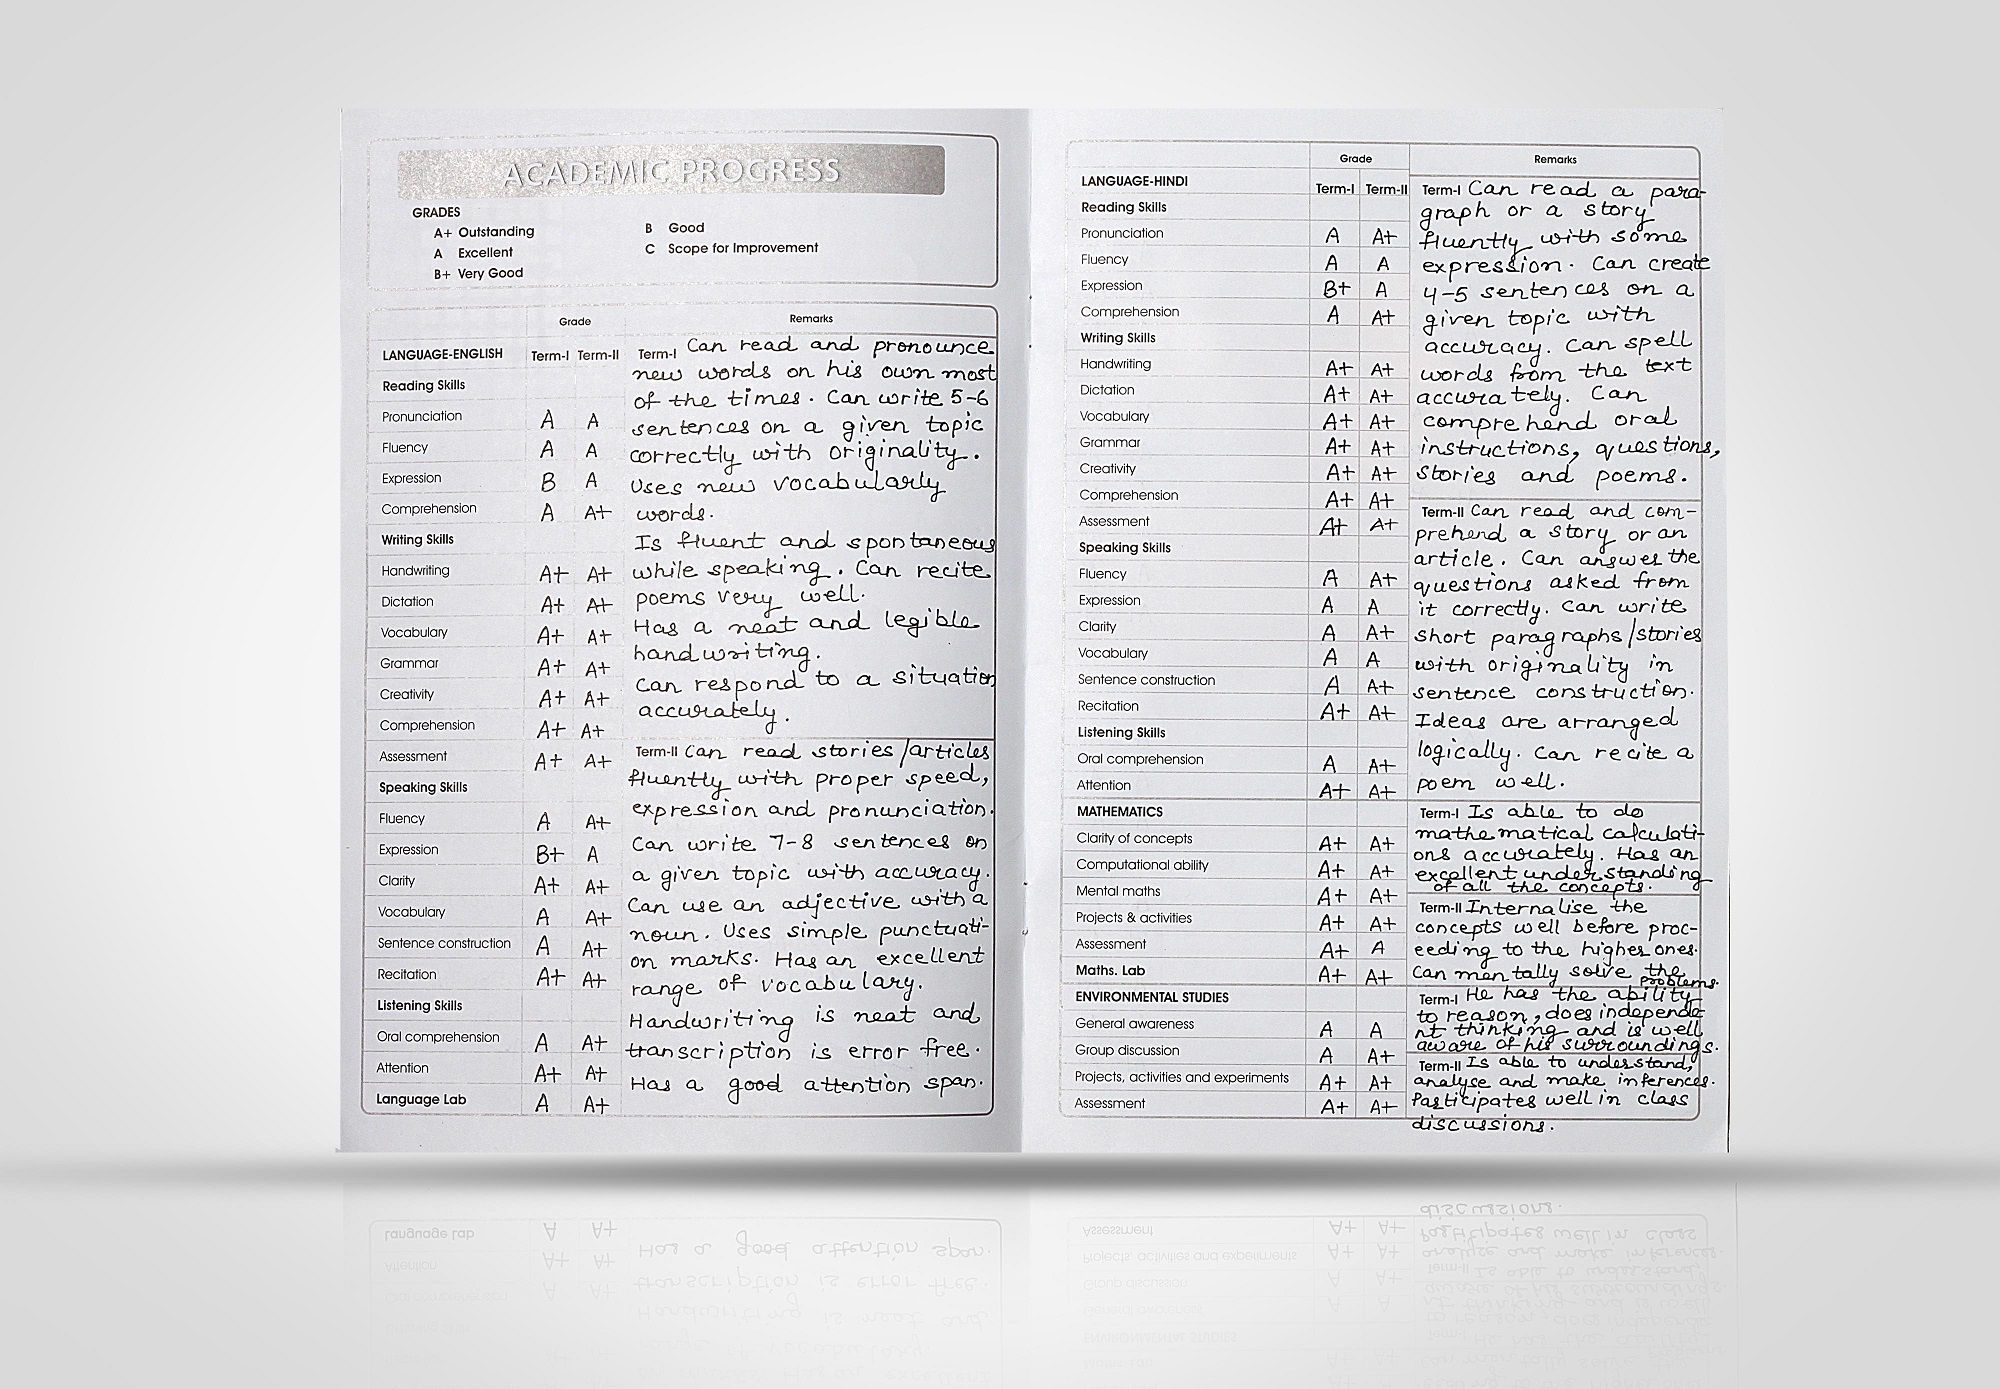 ACADEMIC PROGRESS
GRADES
A+ Outstanding
A Excellent
B+ Very Good
B Good
C Scope for Improvement
Grade Remarks
LANGUAGE-ENGLISH Term-I Term-II
Reading Skills
Pronunciation A A
Fluency A A
Expression B A
Comprehension A A+
Writing Skills
Handwriting A+ A+
Dictation A+ A+
Vocabulary A+ A+
Grammar A+ A+
Creativity A+ A+
Comprehension A+ A+
Assessment A+ A+
Speaking Skills
Fluency A A+
Expression B+ A
Clarity A+ A+
Vocabulary A A+
Sentence construction A A+
Recitation A+ A+
Listening Skills
Oral comprehension A A+
Attention A+ A+
Language Lab A A+
Term-I Can read and pronounce
new words on his own most
of the times. Can write 5-6
sentences on a given topic
correctly with originality.
Uses new vocabularly
words.
Is fluent and spontaneous
while speaking. Can recite
poems very well.
Has a neat and legible
handwriting.
Can respond to a situation
accurately.
Term-II Can read stories/articles
fluently with proper speed,
expression and pronunciation.
Can write 7-8 sentences on
a given topic with accuracy.
Can use an adjective with a
noun. Uses simple punctuati-
on marks. Has an excellent
range of vocabulary.
Handwriting is neat and
transcription is error free.
Has a good attention span.
Grade Remarks
LANGUAGE-HINDI Term-I Term-II
Reading Skills
Pronunciation A A+
Fluency A A
Expression B+ A
Comprehension A A+
Writing Skills
Handwriting A+ A+
Dictation A+ A+
Vocabulary A+ A+
Grammar A+ A+
Creativity A+ A+
Comprehension A+ A+
Assessment A+ A+
Speaking Skills
Fluency A A+
Expression A A
Clarity A A+
Vocabulary A A
Sentence construction A A+
Recitation A+ A+
Listening Skills
Oral comprehension A A+
Attention A+ A+
Term-I Can read a para-
graph or a story
fluently with some
expression. Can create
4-5 sentences on a
given topic with
accuracy. Can spell
words from the text
accurately. Can
comprehend oral
instructions, questions,
stories and poems.
Term-II Can read and com-
prehend a story or an
article. Can answer the
questions asked from
it correctly. Can write
short paragraphs/stories
with originality in
sentence construction.
Ideas are arranged
logically. Can recite a
poem well.
MATHEMATICS
Clarity of concepts A+ A+
Computational ability A+ A+
Mental maths A+ A+
Projects & activities A+ A+
Assessment A+ A
Maths. Lab A+ A+
Term-I Is able to do
mathematical calculati-
ons accurately. Has an
excellent understanding
of all the concepts.
Term-II Internalise the
concepts well before proc-
eeding to the higher ones.
Can mentally solve the
problems.
ENVIRONMENTAL STUDIES
General awareness A A
Group discussion A A+
Projects, activities and experiments A+ A+
Assessment A+ A+
Term-I He has the ability
to reason, does independe
nt thinking and is well
aware of his surroundings.
Term-II Is able to understand,
analyse and make inferences.
Participates well in class
discussions.